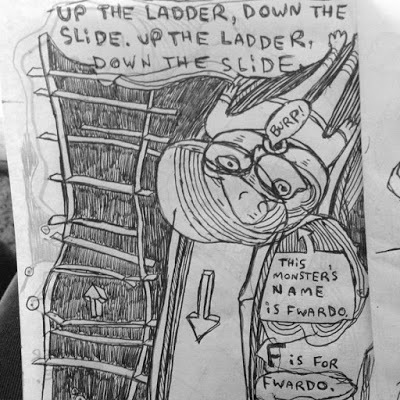 UP THE LADDER, DOWN THE
SLIDE. UP THE LADDER,
DOWN THE SLIDE.
BURP!
THIS
MONSTER'S
NAME
IS FWARDO.
F IS FOR
FWARDO.